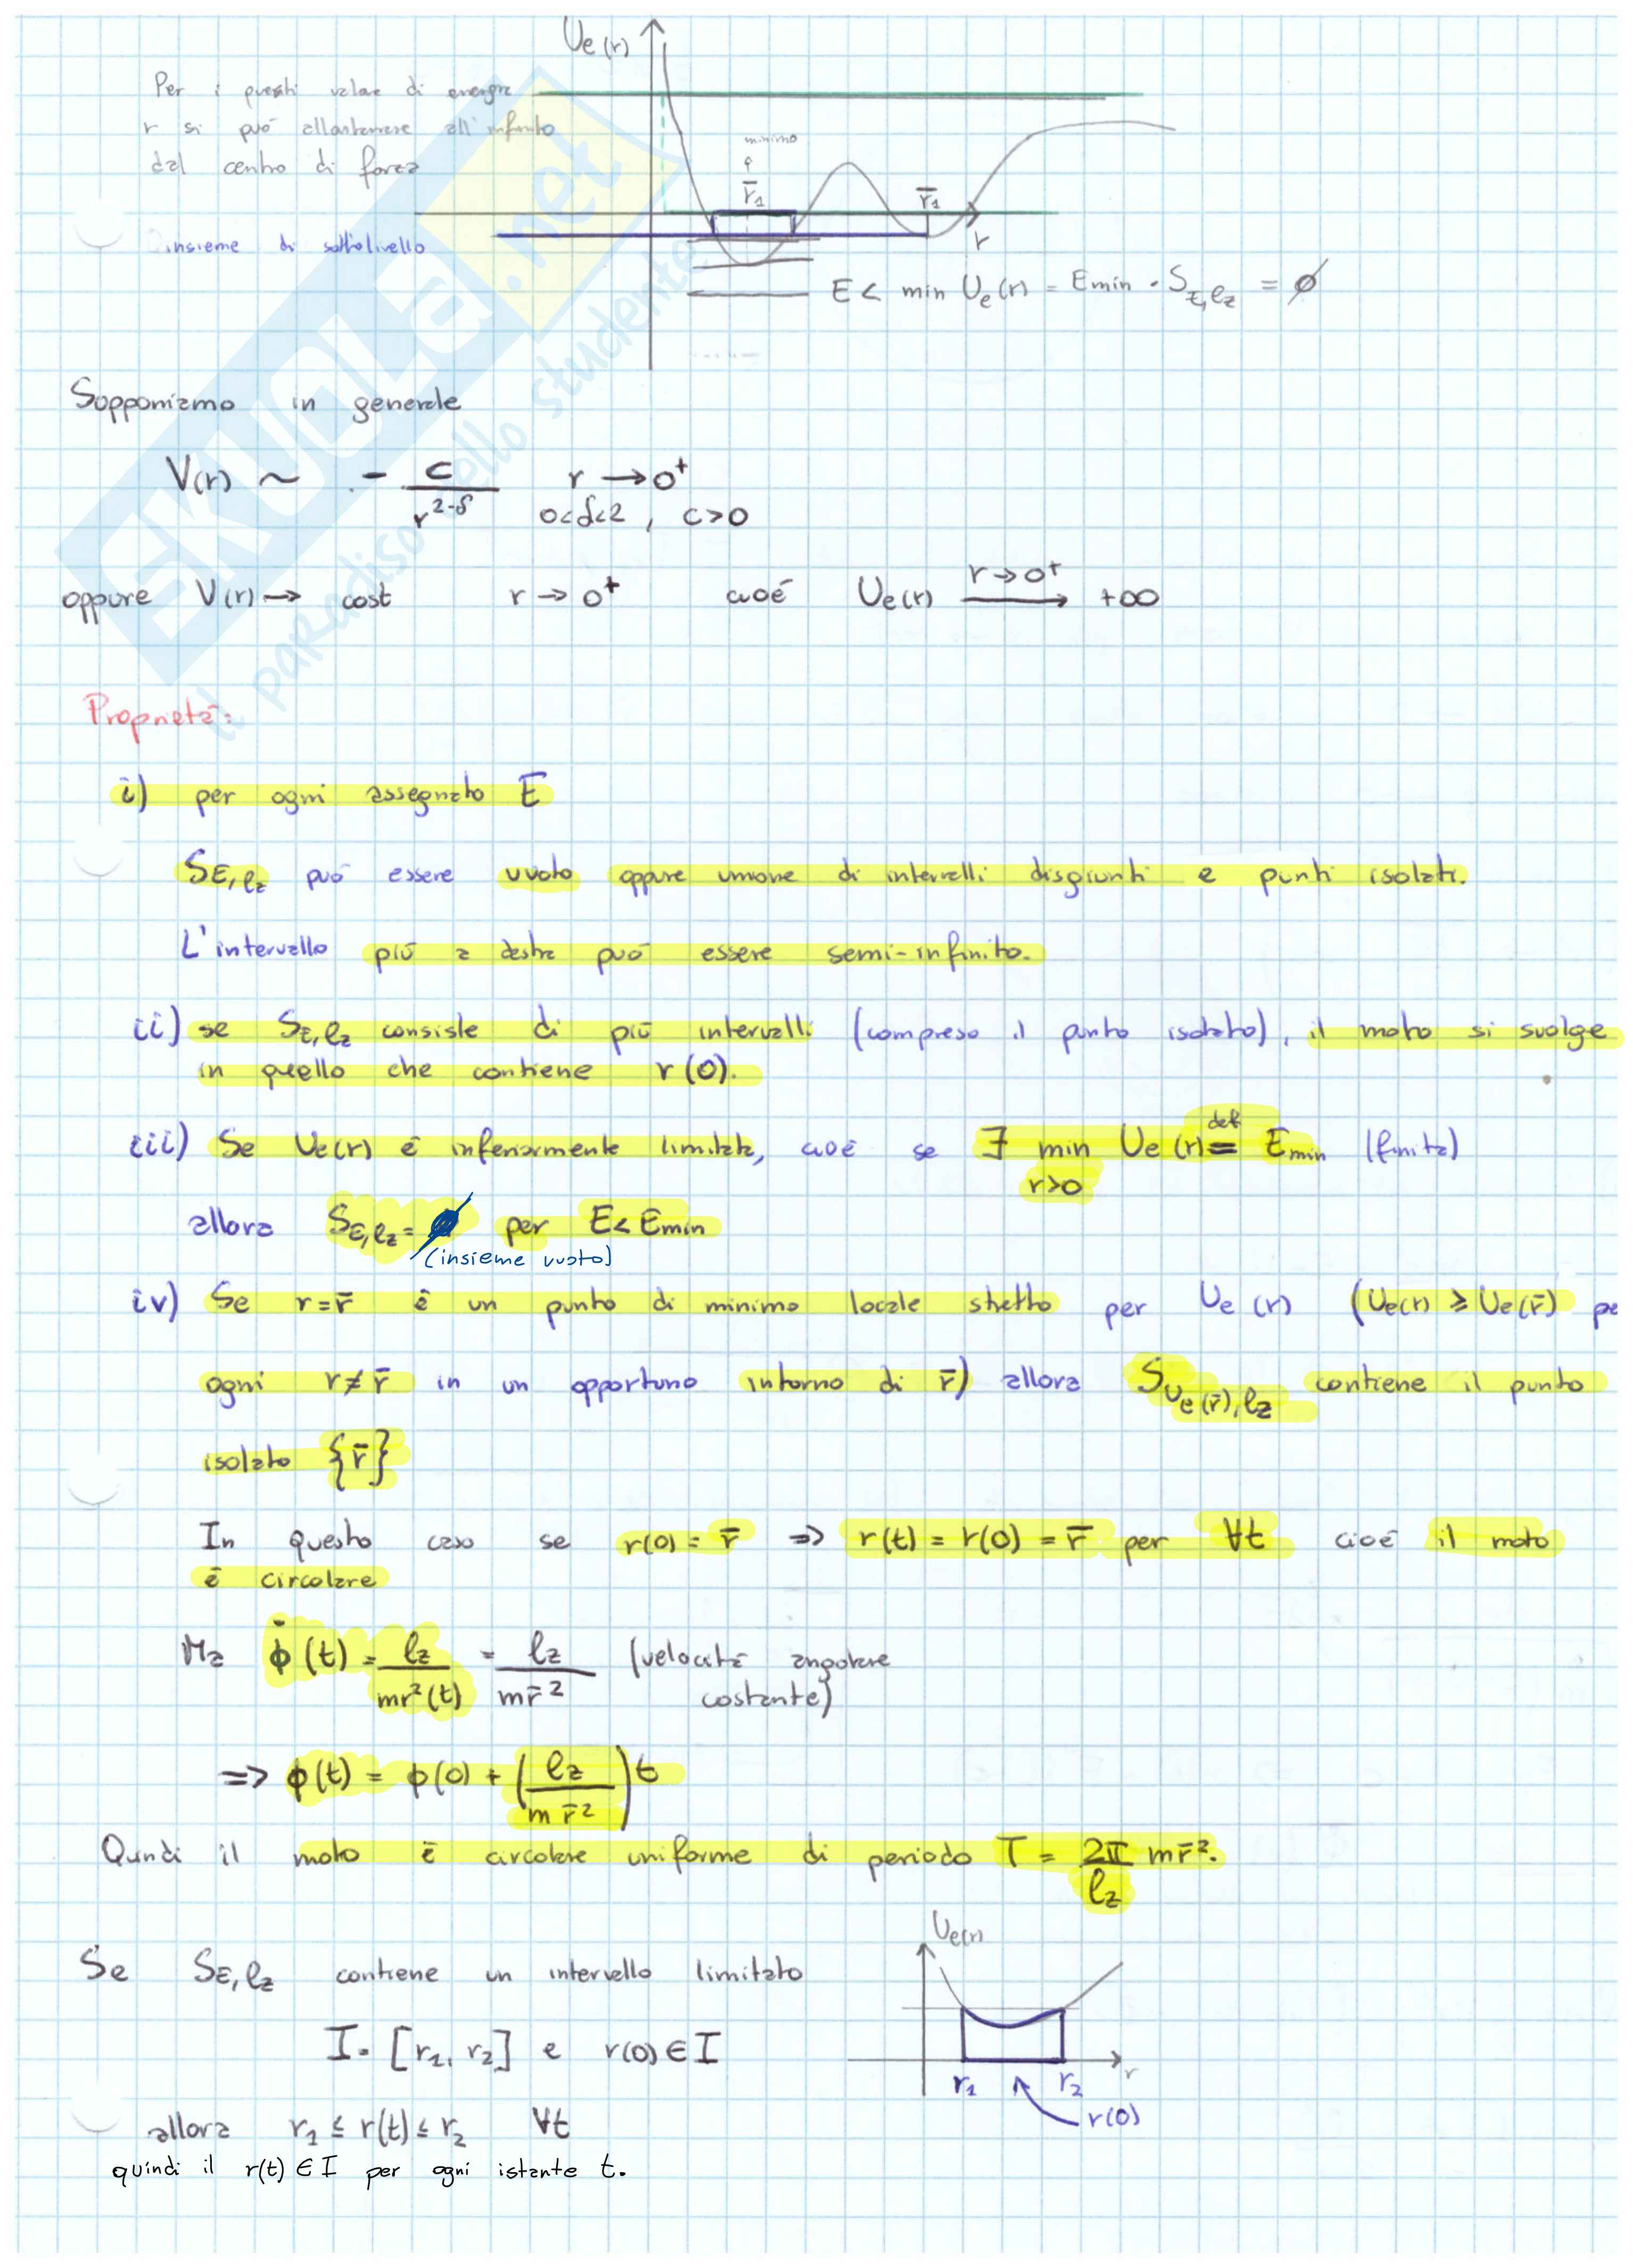 Ue(r)
Per i questi valore di energia
r si può allontanare all'infinito
dal centro di forza
minimo
r̄₁
r̄₁
r
insieme di sottolivello
E < min Ue(r) = Emin · S_E,ℓz = ∅
Supponiamo in generale
V(r) ~ - c/r^(2-δ) r → 0⁺
0<δ<2 , c>0
oppure V(r) → cost r → 0⁺ cioè Ue(r) r→0⁺ → +∞
Proprietà:
i) per ogni assegnato E
S_E,ℓz può essere vuoto oppure unione di intervalli disgiunti e punti isolati.
L'intervallo più a destra può essere semi-infinito.
ii) se S_E,ℓz consiste di più intervalli (compreso il punto isolato), il moto si svolge
in quello che contiene r(0).
iii) Se Ue(r) è inferiormente limitata, cioè se ∃ min r>0 Ue(r) def= Emin (finito)
allora S_E,ℓz = ∅ per E < Emin
(insieme vuoto)
iv) Se r = r̄ è un punto di minimo locale stretto per Ue(r) (Ue(r) ≥ Ue(r̄) pe
ogni r ≠ r̄ in un opportuno intorno di r̄) allora S_Ue(r̄),ℓz contiene il punto
isolato {r̄}
In questo caso se r(0) = r̄ => r(t) = r(0) = r̄ per ∀t cioè il moto
è circolare
Ma φ̇(t) = ℓz/mr²(t) = ℓz/mr̄² (velocità angolare
costante)
=> φ(t) = φ(0) + (ℓz/m r̄²)t
Quindi il moto è circolare uniforme di periodo T = 2π/ℓz mr̄².
Ue(r)
Se S_E,ℓz contiene un intervallo limitato
I = [r₁, r₂] e r(0) ∈ I
r
r₁ r₂
r(0)
allora r₁ ≤ r(t) ≤ r₂ ∀t
quindi il r(t) ∈ I per ogni istante t.
SKUOLa.net
il paradiso dello studente